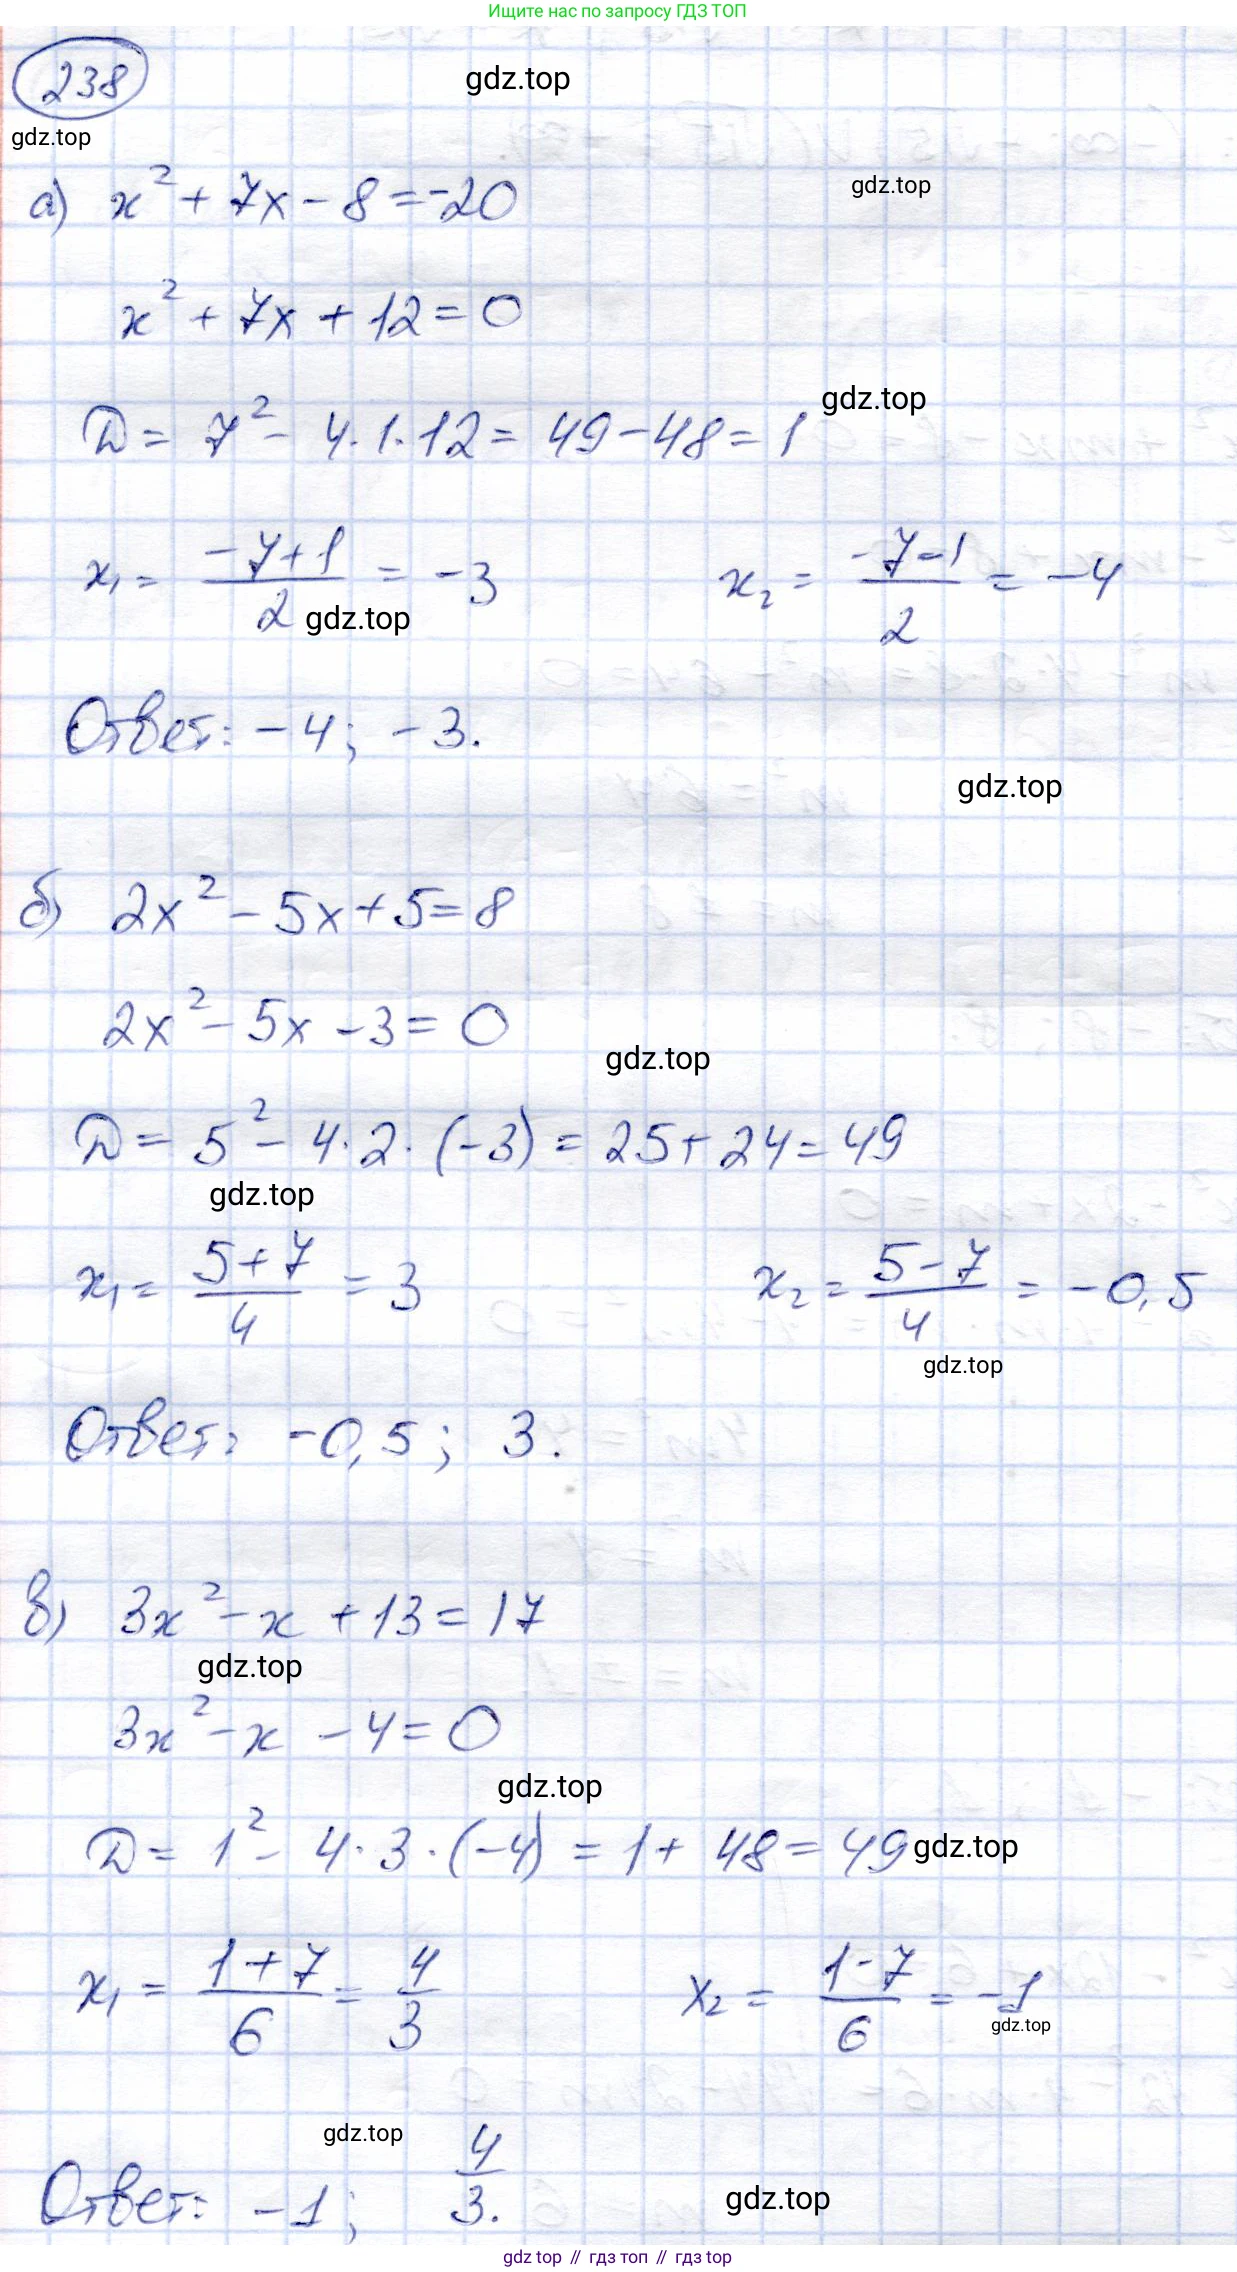 Ищите нас по запросу ГДЗ ТОП
238
gdz.top
gdz.top
а) x² + 7x - 8 = -20
gdz.top
x² + 7x + 12 = 0
D = 7² - 4·1·12 = 49 - 48 = 1
gdz.top
x₁ = (-7+1)/2 = -3 x₂ = (-7-1)/2 = -4
gdz.top
Ответ: -4; -3.
gdz.top
б) 2x² - 5x + 5 = 8
2x² - 5x - 3 = 0
gdz.top
D = 5² - 4·2·(-3) = 25 + 24 = 49
gdz.top
x₁ = (5+7)/4 = 3 x₂ = (5-7)/4 = -0,5
gdz.top
Ответ: -0,5; 3.
в) 3x² - x + 13 = 17
gdz.top
3x² - x - 4 = 0
gdz.top
D = 1² - 4·3·(-4) = 1 + 48 = 49
gdz.top
x₁ = (1+7)/6 = 4/3 x₂ = (1-7)/6 = -1
gdz.top
gdz.top
Ответ: -1; 4/3.
gdz.top
gdz top // гдз топ // гдз top